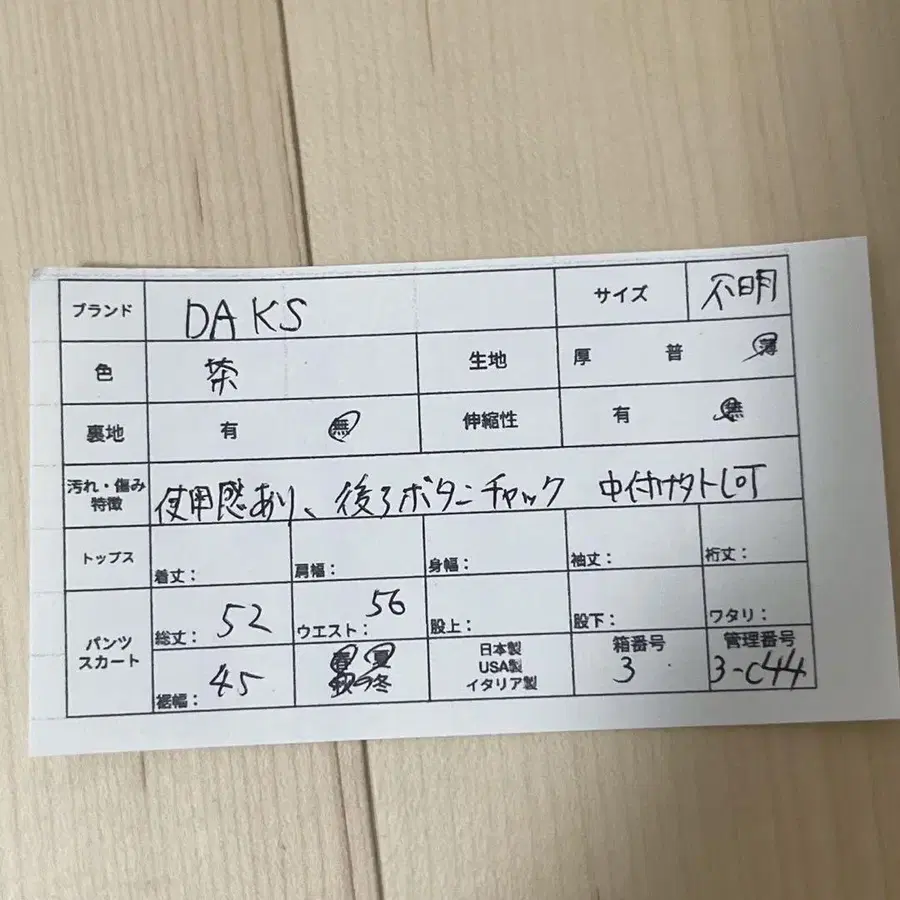 ブランド DAKS サイズ 不明
色 茶 生地 厚 普 薄
裏地 有 無 伸縮性 有 無
汚れ・傷み
特徴 使用感あり、後ろボタンチャック
トップス 着丈: 肩幅: 身幅: 袖丈: 裄丈:
パンツ
スカート 総丈: 52 ウエスト: 56 股上: 股下: ワタリ:
裾幅: 45 春 夏
秋 冬
日本製
USA製
イタリア製
箱番号
3
管理番号
3-C44